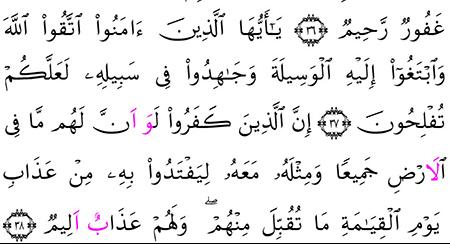 غَفُورٌ رَّحِيمٌ ٣٦ يَٰٓأَيُّهَا ٱلَّذِينَ ءَامَنُوا۟ ٱتَّقُوا۟ ٱللَّهَ
وَٱبْتَغُوٓا۟ إِلَيْهِ ٱلْوَسِيلَةَ وَجَٰهِدُوا۟ فِى سَبِيلِهِۦ لَعَلَّكُمْ
تُفْلِحُونَ ٣٧ إِنَّ ٱلَّذِينَ كَفَرُوا۟ لَوَ اَنَّ لَهُم مَّا فِى
اَ۬لَارْضِ جَمِيعًا وَمِثْلَهُۥ مَعَهُۥ لِيَفْتَدُوا۟ بِهِۦ مِنْ عَذَابِ
يَوْمِ ٱلْقِيَٰمَةِ مَا تُقُبِّلَ مِنْهُمْ ۖ وَلَهُمْ عَذَابٌ اَلِيمٌ ٣٨